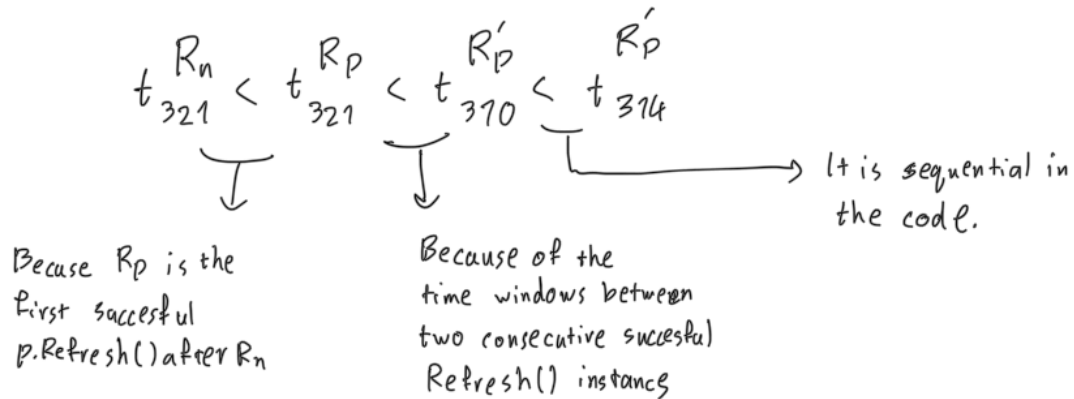 t₃₂₁^Rn < t₃₂₁^Rp < t₃₁₀^R'p < t₃₁₄^R'p
It is sequential in
the code.
Becuse Rp is the
first saccesful
p.Refresh() after Rn
Because of the
time windows between
two consecutive succesful
Refresh() instances